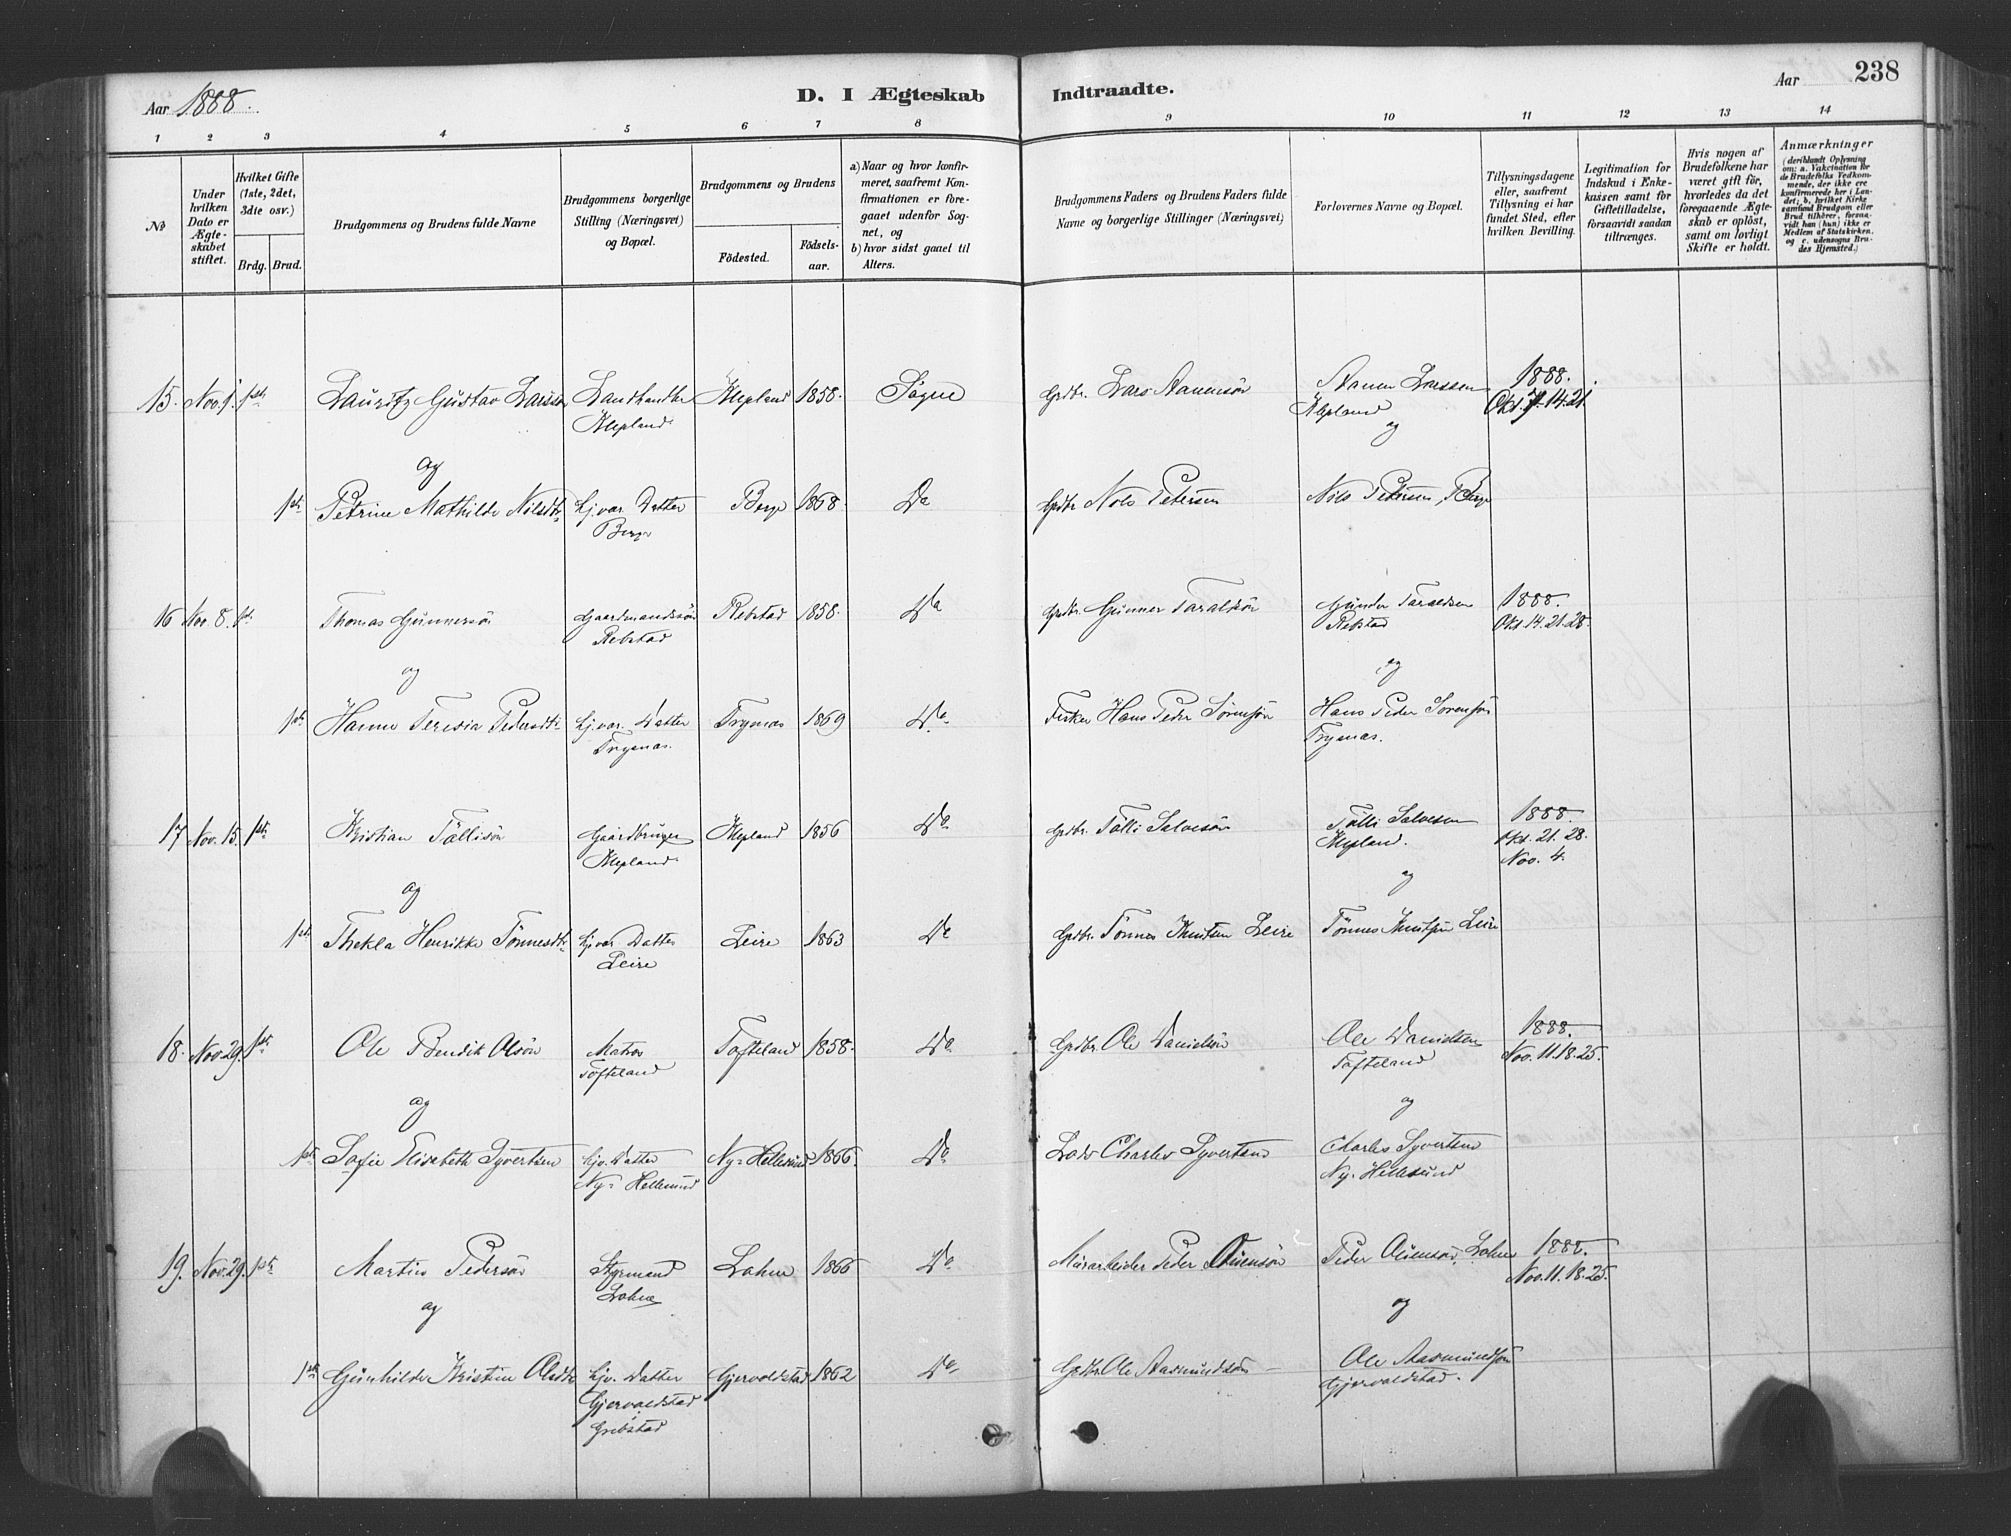 Aar 1888.
D. I Ægteskab Indtraadte.
Aar 238
1 2 3 4 5 6 7 8 9 10 11 12 13 14
No
Under hvilken Dato er Ægteskabet stiftet.
Hvilket Gifte (1ste, 2det, 3die osv.)
Brdg. Brud.
Brudgommens og Brudens fulde Navne
Brudgommens borgerlige Stilling (Næringsvei) og Bopæl.
Brudgommens og Brudens
Födested.
Födselsaar.
a) Naar og hvor konfirmeret, saafremt Konfirmationen er foregaaet udenfor Sognet, og
b) hvor sidst gaaet til Alters.
Brudgommens Faders og Brudens Faders fulde Navne og borgerlige Stillinger (Næringsvei)
Forlovernes Navne og Bopæl.
Tillysningsdagene eller, saafremt Tillysning ei har fundet Sted, efter hvilken Bevilling.
Legitimation for Indskud i Enkekassen samt for Giftetilladelse, forsaavidt saadan tiltrænges.
Hvis nogen af Brudefolkene har været gift för, hvorledes da det foregaaende Ægteskab er oplöst, samt om lovligt Skifte er holdt.
Anmærkninger
(deriblandt Oplysning om: a. Vakcination for de Brudefolks Vedkommende, der ikke ere konfirmerede her i Landet; b. hvilket Kirkesamfund Brudgom eller Brud tilhörer, forsaavidt han (hun) ikke er Medlem af Statskirken, og c. udensogns Brudes Hjemsted.)
15. Nov. 1. 1ste Lauritz Gustav Larssen Landhandler Klepland Klepland 1858. Søgne Grdbr. Lars Aanensön Aanen Larssen Klepland 1888. Okt. 7. 14. 21.
og og
1ste Petrine Mathilde Nilsdtr. hj.var. Datter Berge Berge 1868. Do Grdbr. Nils Petersen Nils Petersen, Berge
16 Nov. 8. 1ste Thomas Gunnersön Gaardmandssön Rebstad Rebstad 1858. Do Grdbr. Gunner Taralsön Gunder Taraldsen Rebstad 1888. Okt. 14. 21. 28.
og og
1ste Hanne Teresia Pedersdtr. hj.var. Datter Trysnæs. Trysnæs 1869 Do Fisker Hans Peder Sörensön Hans Peder Sörensön Trysnæs.
17 Nov. 15. 1ste Kristian Tallisön Gaardbruger Klepland Klepland 1856 Do Grdbr. Talli Salvesön Talli Salvesen Klepland. 1888. Okt. 21. 28. Nov. 4.
og og
1ste Thekla Henrikke Tönnesdtr. hj.var. Datter Leire Leire 1863 Do Grdbr. Tönnes Knutsen Leire Tönnes Knutsen Leire
18. Nov. 29. 1ste Ole Bendik Olsön Matros Tofteland Tofteland 1858. Do Grdbr. Ole Danielsön Ole Danielsen Tofteland 1888. Nov. 11. 18. 25.
og og
1ste Sofie Elisabeth Syvertsen hjv. Datter Ny-Hellesund Ny-Hellesund 1866. Do Lods Charles Syvertsen Charles Syvertsen Ny-Hellesund
19. Nov. 29. 1ste Martin Pedersön Styrmand Lohne Lohne 1866 Do Murarbeider Peder Peder Lohne 1888. Nov. 11. 18. 25.
og og
1ste Gunhilde Kristine Olsdtr. hjv. Datter Gjervoldstad Gjervoldstad 1862 Do Grdbr. Ole Aasmundsön Ole Aasmundsön Gjervoldstad.